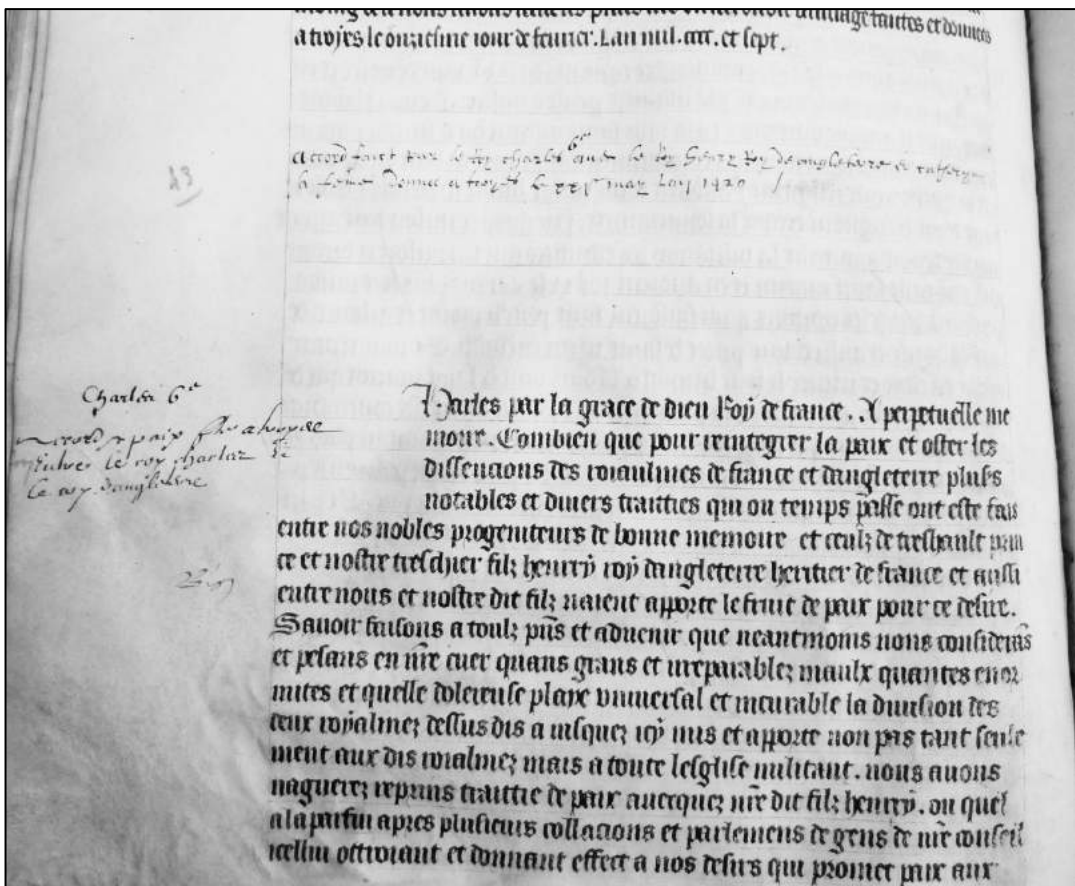 a troyes le onziesme iour de feurier. Lan mil. cccc. et sept.
accord faict par le roy charles 6e auec le roy henry roy dangleterre et
donnee a troyes le xxj may lan 1420
Charles 6e
accord et paix
le roy charles
le roy dangleterre
harles par la grace de dieu Roy de france. A perpetuelle me
moire. Combien que pour reintegrer la paix et oster les
dissencions des roiaulmes de france et dangleterre pluss
notables et diuers traitties qui ou temps passe ont este fais
entre nos nobles progeniteurs de bonne memoire et ceulz de treshault prin
ce et nostre treschier filz henry roy dangleterre heritier de france et aussi
entre nous et nostre dit filz naient apporte le fruit de paix pour ce desire.
Sauoir faisons a toulz pñs et aduenir que neantmoins nous considerãs
et pesans en nr̃e cuer quans grans et irreparablez maulx quantes enor
mites et quelle dolereuse plaie vniuersal et incurable la diuision des
deux royalmez dessus dis a iusquez icy mis et apporte non pas tant seule
ment aux dis roialmez mais a toute lesglise militant. nous auons
naguerez reprins traittie de paix auecquez nr̃e dit filz henry. ou quel
a la parfin apres plusieurs collacions et parlemens de gens de nr̃e conseil
icellui ottroiant et donnant effect a nos desirs qui promet paix aux